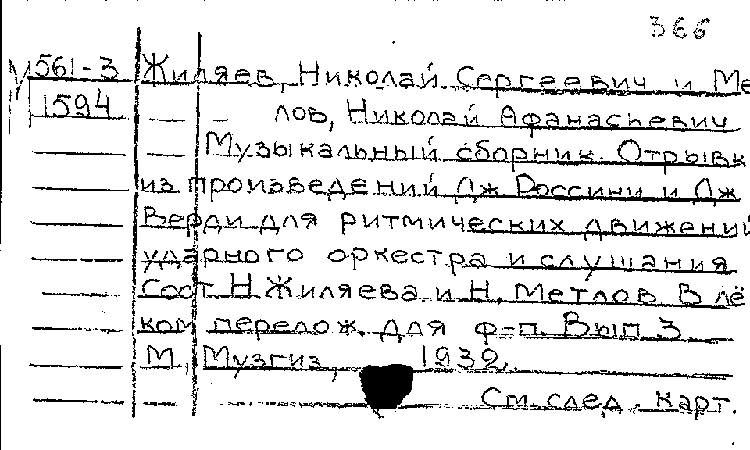 366
М 561-3 Жиляев, Николай Сергеевич и Ме
1594 — — лов, Николай Афанасьевич
Музыкальный сборник. Отрывк
из произведений Дж Россини и Дж
Верди для ритмических движений
ударного оркестра и слушания
Сост Н Жиляева и Н. Метлов В лё
ком перелож. для ф-п. Вып 3
М, Музгиз, 1932.
См. след. карт.